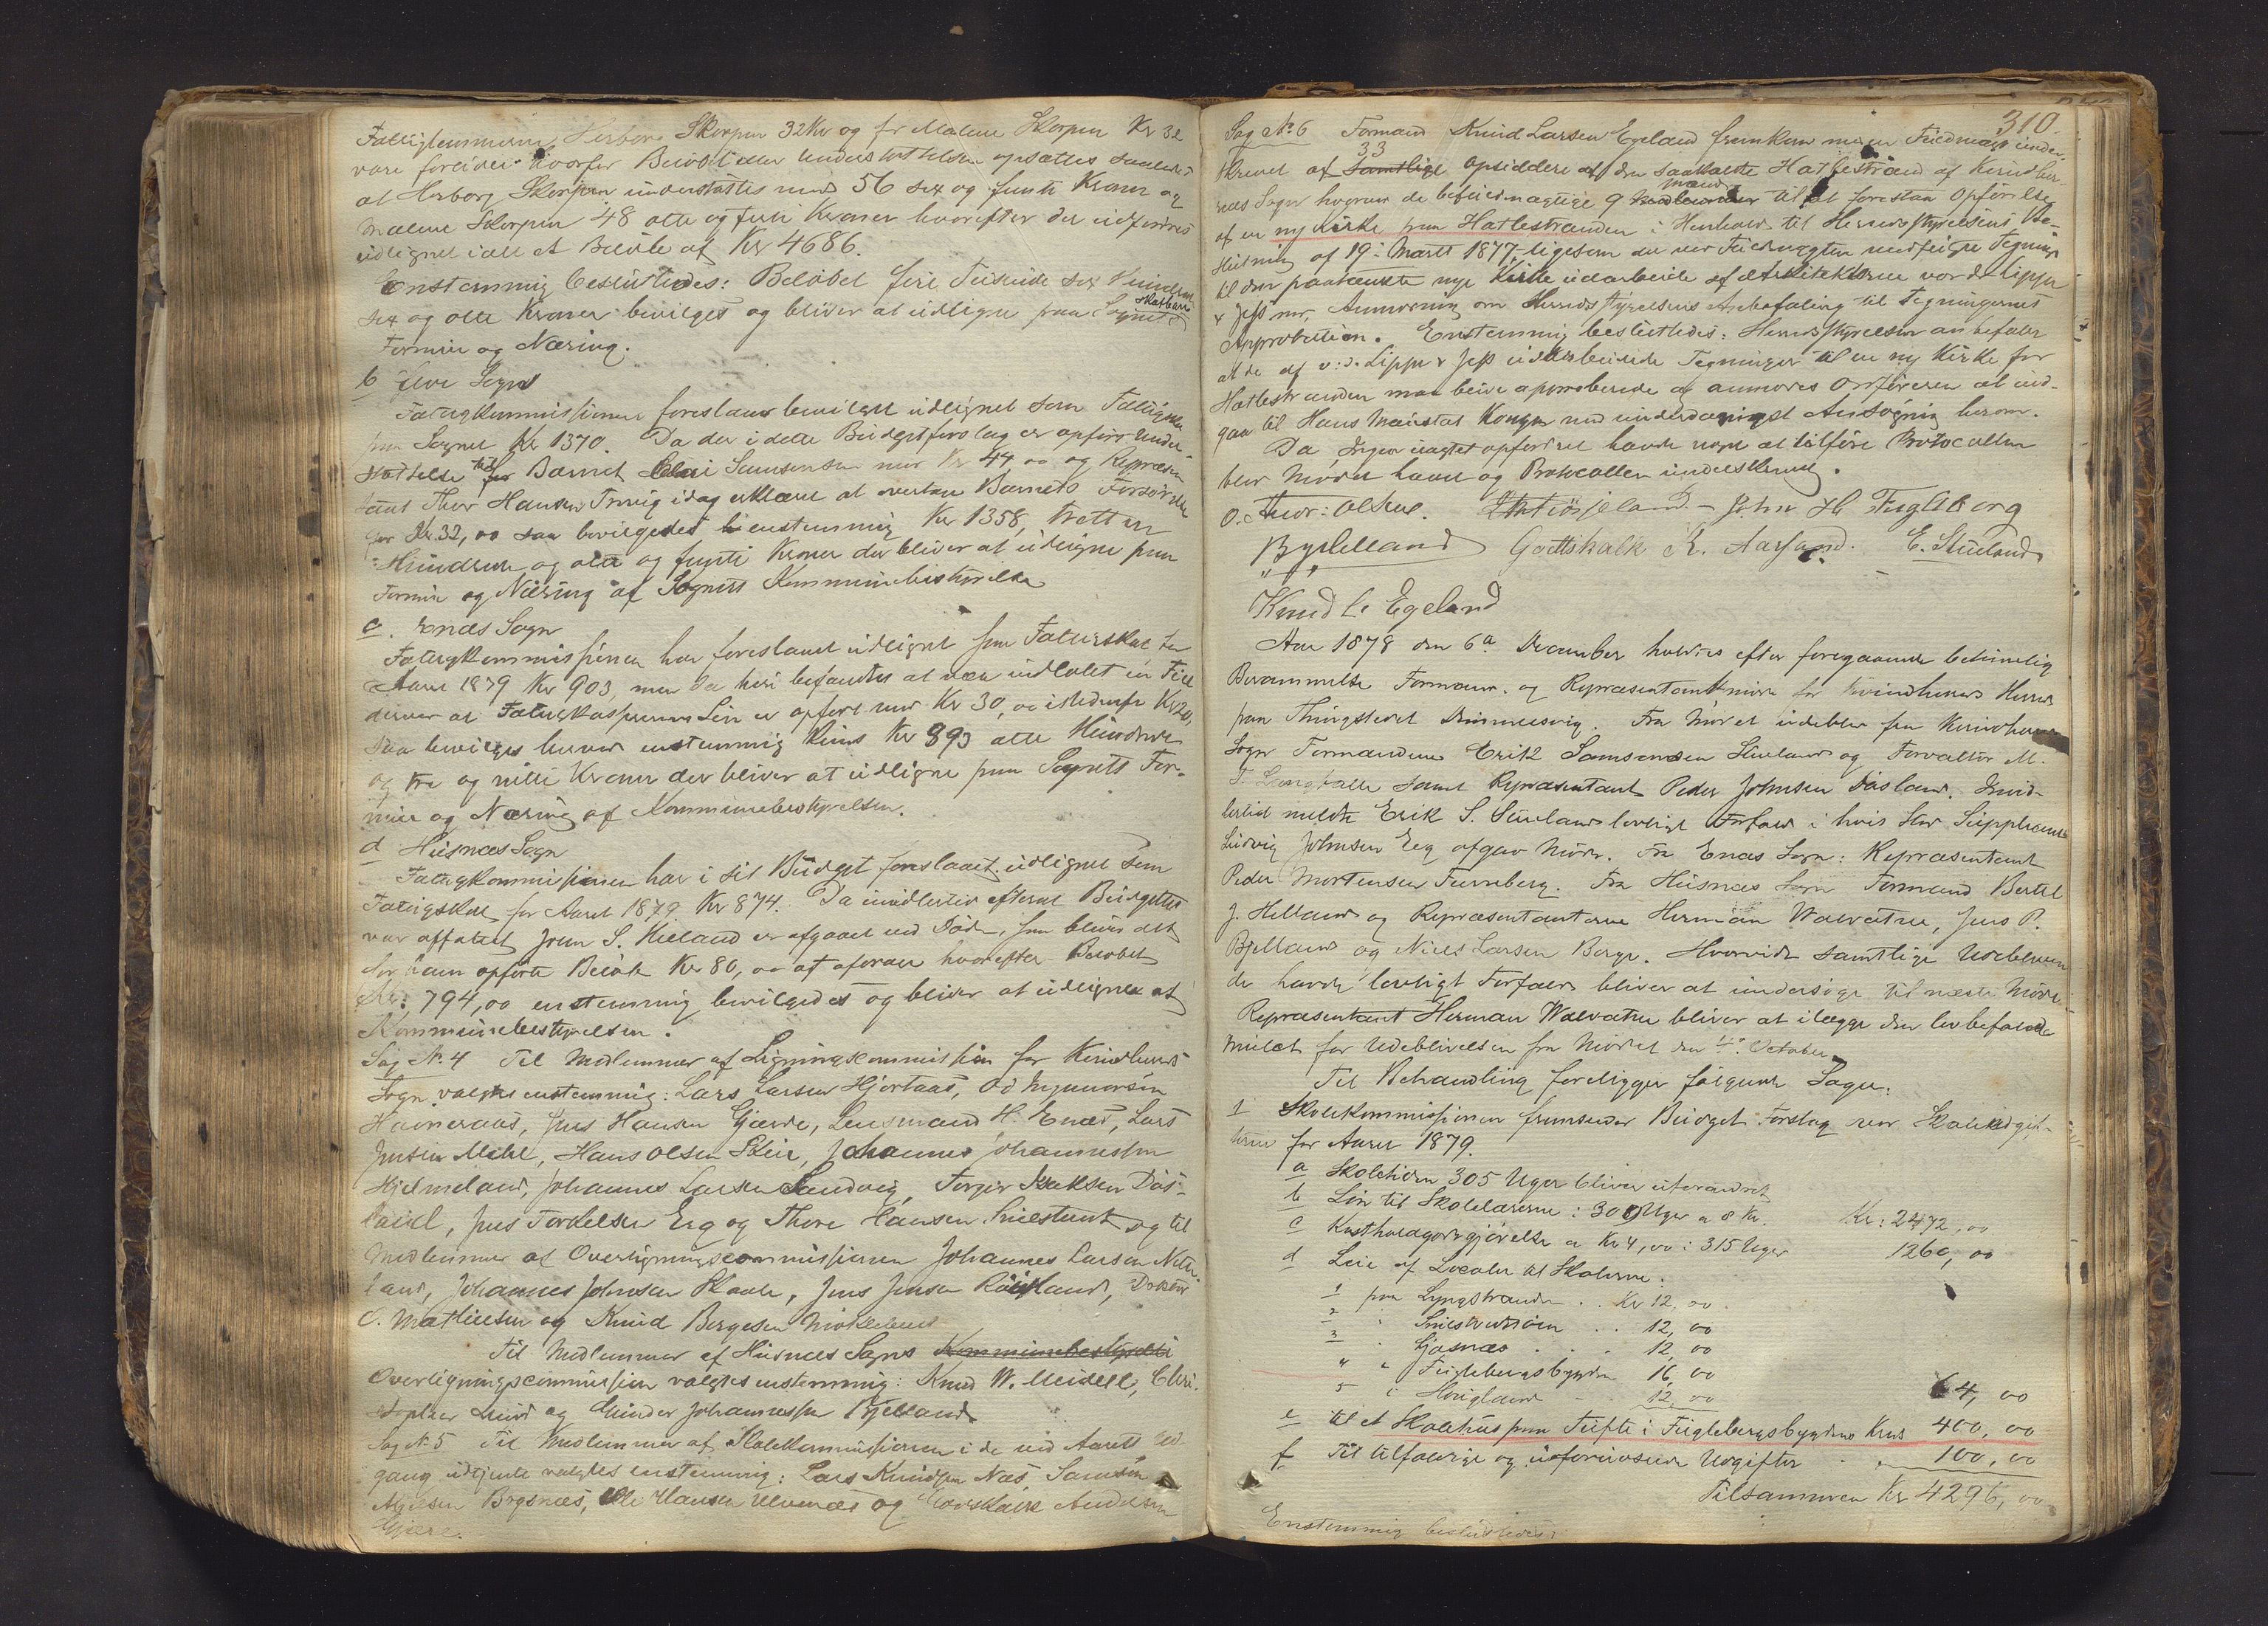 Fattiglemmerne Herborg Skorpen 32 Kr og for Malene Skorpen Kr 32
vare for hvorfor Beløbet understøttelsen opsættes saaledes
at Herborg Skorpen understøttes med 56 sex og femti Kroner og
Malene Skorpen 48 otte og førti Kroner hvorefter der udfordres
udlignet ialt et Beløb af Kr 4686.
Enstemmig besluttedes: Beløbet fire Tusinde sex Hundrede
sex og otte Kroner bevilges og bliver at udligne paa Sognets skatbare
Formue og Næring.
b Sogn
Fattigkommissionen foreslaar bevilget udlignet som Fattigskat
paa Sognet Kr 1370. Da der i dette Budgetforslag er opført Under-
støttelse til for Barnet Samsonsen med Kr 44,00 og Repræsen-
tant Thor Hansen idag erklæret at overtage Barnets Forsørgelse
for Kr. 32,00 saa bevilgedes enstemmig Kr 1358, tretten
Hundrede og otte og femti Kroner der bliver at udligne paa
Formue og Næring af Sognets Kommunebestyrelse
c. Enæs Sogn
Fattigkommissionen har foreslaaet udlignet som Fattigskat for
Aaret 1879 Kr 903, men da heri befandtes at være indløbet en Feil
derved at Fattigkasserernes Løn er opført med Kr 30,00 istedetfor Kr 20,
saa bevilges herved enstemmig kuns Kr 893 otte Hundrede
og tre og nitti Kroner der bliver at udligne paa Sognets For-
mue og Næring af Kommunebestyrelsen.
d Husnæs Sogn
Fattigkommissionen har i sit Budget foreslaaet udlignet som
Fattigskat for Aaret 1879 Kr 874. Da imidlertid efterat Budgettet
var affattet John S. Kieland er afgaaet ved Døden, saa bliver det
for ham opførte Beløb Kr 80,00 at afdrage hvorefter Beløbet
Kr: 794,00 enstemmig bevilgedes og bliver at udligne af
Kommunebestyrelsen.
Sag No. 4 Til Medlemmer af Ligningscommission for Kvindherreds
Sogn valgtes enstemmig: Lars Larsen Hjortaas, Od Ingmorsen
Havneraas, Jens Hansen Gjerde, Lensmand H. Enæs, Lars
Jensen Mehl, Hans Olsen Skeie, Johannes Johannessen
Hjelmeland, Johannes Larsen Sandvig, Torger Isaksen Døs-
land, Jens Torkelsen Eeg og Thore Hansen Snilstvedt og til
Medlemmer af Overligningscommissionen Johannes Larsen
land, Johannes Johnsen Skaale, Jens Jensen Røisland, Doktor
C. Mathiesen og Knud Bergesen Mehlehus
Til Medlemmer af Husnæs Sogns Kommunebestyrelse
Overligningscommission valgtes enstemmig: Knud W. Meidell, Chri-
stopher Lund og Gunder Johannessen Bjelland.
Sag No 5 Til Medlemmer af Skolekommissionen i de ved Aarets Ud-
gang udtjente valgtes enstemmig: Lars Knudsen Næs, Samson
Bogsnæs, Ole Hansen Ulvenæs og Godskalk Andersen
Gjære.
310.
Sag No 6 Formand Knud Larsen Egeland fremkom med en Fuldmagt under-
skrevet af 33 samtlige Opsiddere af den saakaldte Hatlestrand af Kvindher-
reds Sogn hvorved de befuldmægtige 9 Medlemmer mænd til at forestaa Opførelse
af en ny Kirke paa Hatlestranden i Henhold til Herredsstyrelsens Be-
slutning af 19. Marts 1877, ligesom der ved Fuldmagten medfølger Tegninger
til den paatænkte nye Kirke udarbeide af Arkitekterne von der Lippe
& Jess med Anmodning om Herredsstyrelsens Anbefaling til Tegningernes
Approbation. Enstemmig besluttedes: Herredsstyrelsen anbefaler
at de af v: d: Lippe & Jess udarbeidede Tegninger til en ny Kirke for
Hatlestranden maa blive approberede og anmodes Ordføreren at ind-
gaa til Hans Majestæt Kongen med underdanigst Ansøgning herom.
Da Ingen uagtet opfordret havde noget at tilføre Protocollen
blev Mødet hævet og Protocollen underskrevet.
O. Andr: Olsen. John H Fugleberg
Bjelland Godtskalk K. Aarsand. E. Stueland
Knud L Egeland
Aar 1878 den 6te December holdtes efter foregaaende betimelig
Berammelse Formænd- og Repræsentantmøde for Kvindherreds Herred
paa Thingstedet Dimmelsvig. Fra Mødet udeblev fra Kvindherreds
Sogn Formændene Erik Samsonsen Stueland og Forvalter M.
T. Langballe samt Repræsentant Peder Johnsen Døsland. Imid-
lertid meldte Erik S. Stueland lovligt Forfald i hvis Sted Suppleant
Ludvig Johnsen Eeg afgav Møde. Fra Enæs Sogn: Repræsentant
Peder Mortensen Furreberg. Fra Husnæs Sogn Formand Bertel
J. Helland og Repræsentanterne Herman Valvatne, Jens P.
Bjelland og Niels Larsen Berge. Hvorvidt samtlige Udeblevne
de havde lovligt Forfald bliver at undersøge til næste Møde
Repræsentant Herman Walvatne bliver at ilægge den lovbefalede
Mulct for Udeblivelsen fra Mødet den 4de October
Til Behandling foreligger følgende Sager:
1 Skolekommissionen fremsender Budget Forslag over Skoleudgif-
terne for Aaret 1879.
a Skoletiden 305 Uger bliver uforandret
b Løn til Skolelærerne: 309 Uger a 8 Kr. Kr: 2472,00
c Kostholdsgodtgjørelse a Kr 4,00: 315 Uger 1260,00
d Leie af Locale til Skolerne:
1 paa Lyngstranden . . Kr 12,00.
2 " Snilstvedtøen . . 12,00
3 " Gjøsnæs . . . 12,00
4 " Fuglebergsbygden 16,00
5 " Hougland 12,00 64,00
e til et Skolehus paa Tufte i Fuglebergsbygden Kr 400,00
f Til tilfældige og uforudseede Udgifter 100,00
Tilsammen Kr 4296,00
Enstemmig besluttedes: